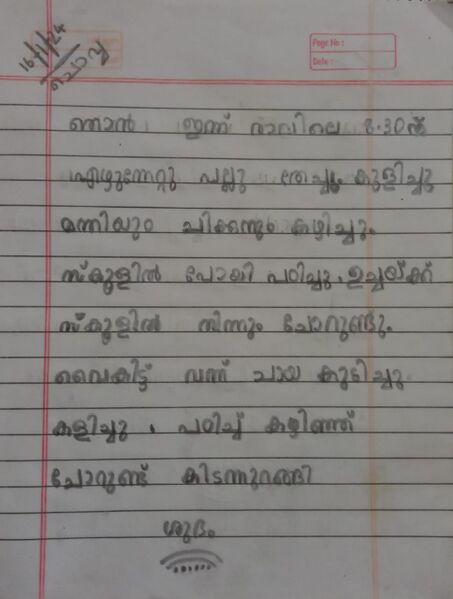 16/1/24
ചൊവ്വ
Page No :
Date :
ഞാൻ ഇന്ന് രാവിലെ 8.30ന്
എഴുന്നേറ്റു പല്ലു തേച്ചു. കുളിച്ചു
മന്തിയും ചിക്കനും കഴിച്ചു.
സ്കൂളിൽ പോയി പഠിച്ചു. ഉച്ചയ്ക്ക്
സ്കൂളിൽ നിന്നും ചോറുണ്ടു.
വൈകിട്ട് വന്ന് ചായ കുടിച്ചു
കളിച്ചു . പഠിച്ച് കഴിഞ്ഞ്
ചോറുണ്ട് കിടന്നുറങ്ങി
ശുഭം